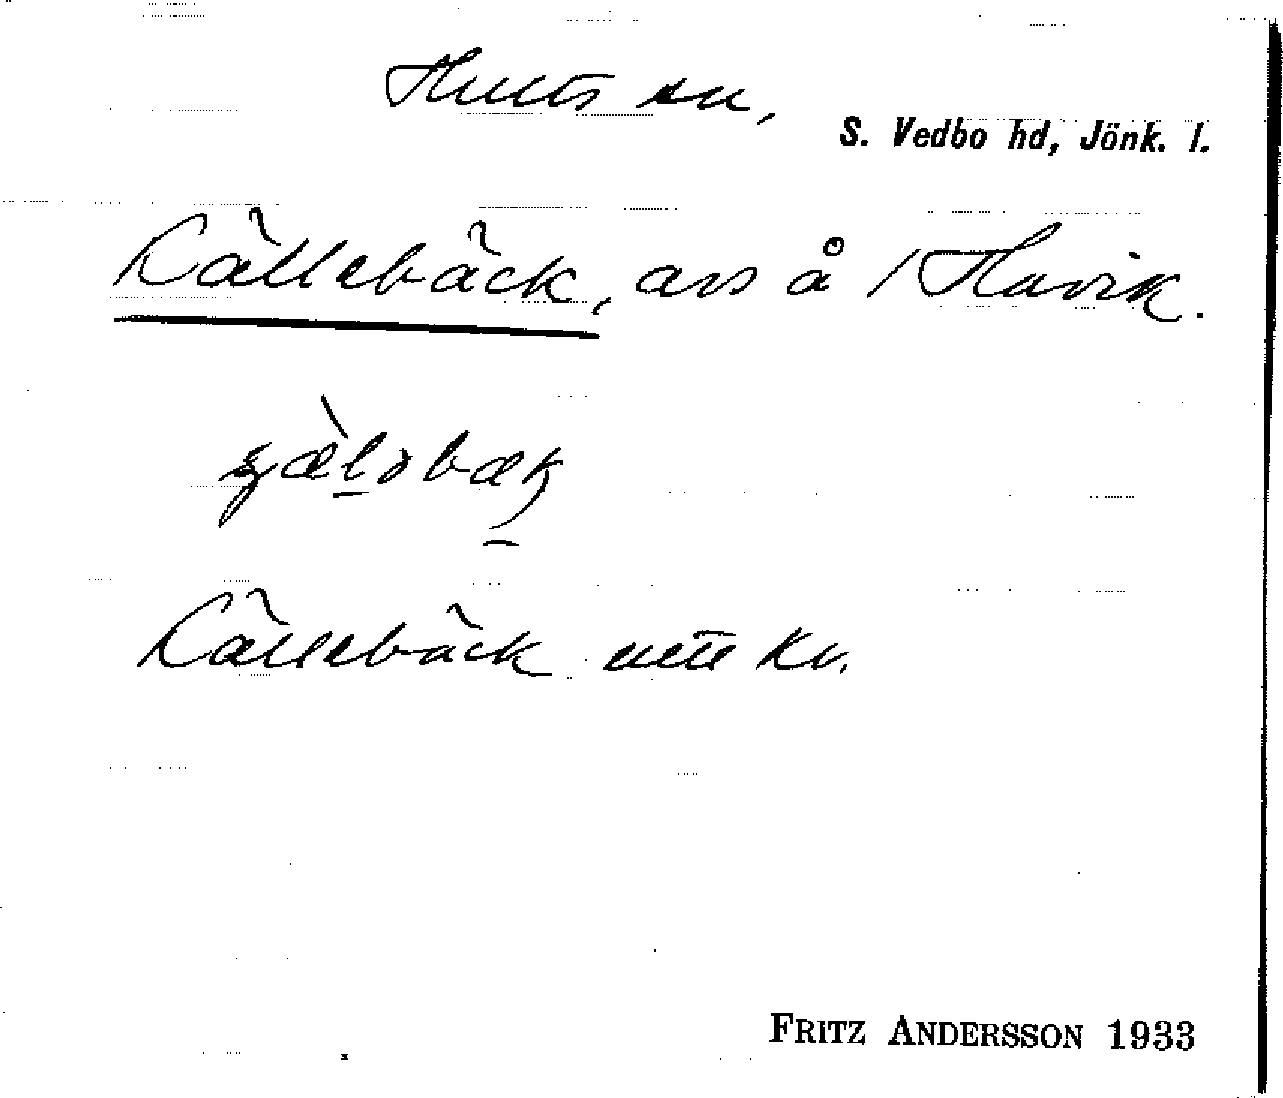 Hults sn,
S. Vedbo hd, Jönk. l.
Källebäck, avs å 1 Havik.
Källebäck uttl kv.
FRITZ ANDERSSON 1933